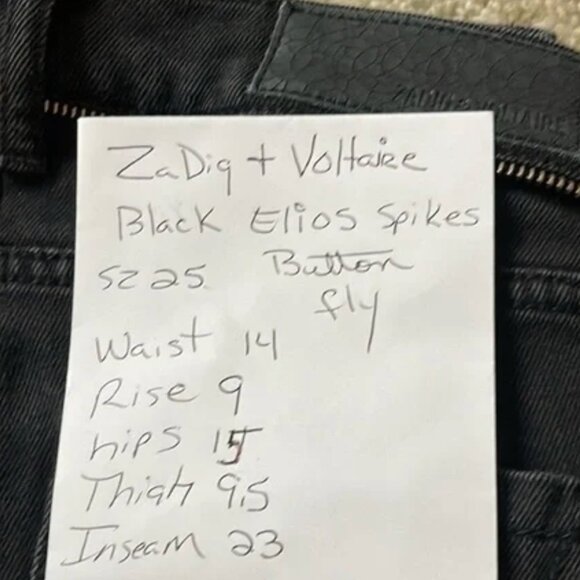 ZaDig + Voltaire
Black Elios Spikes
SZ 25 Button
fly
Waist 14
Rise 9
hips 15
Thigh 9.5
Inseam 23